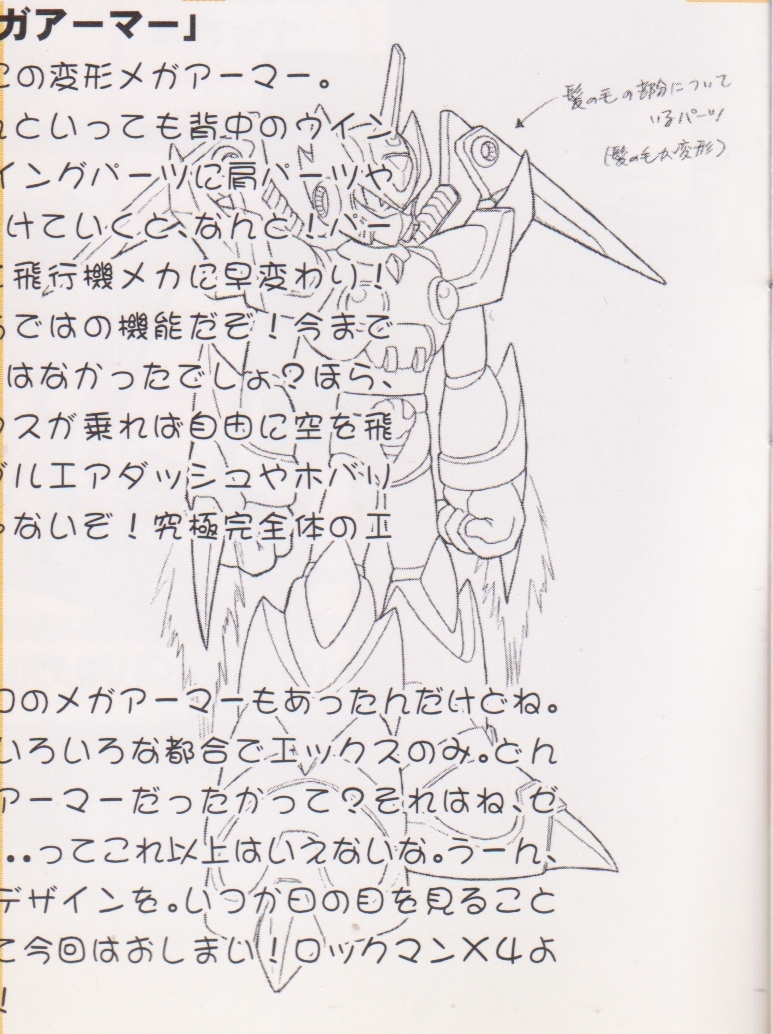 ガアーマー」
この変形メガアーマー。
んといっても背中のウイン
イングパーツに肩パーツや
けていくと、なんと！パー
に飛行機メカに早変わり！
らではの機能だぞ！今まで
はなかったでしょ？ほら、
クスが乗れば自由に空を飛
ブルエアダッシュやホバリ
ゃないぞ！究極完全体のエ
髪の毛の部分について
いるパーツ
(髪の毛が変形)
ロのメガアーマーもあったんだけどね。
いろいろな都合でエックスのみ。どん
アーマーだったかって？それはね、ゼ
‥ってこれ以上はいえないな。うーん、
デザインを。いつか日の目を見ること
て今回はおしまい！ロックマンX4よ
！